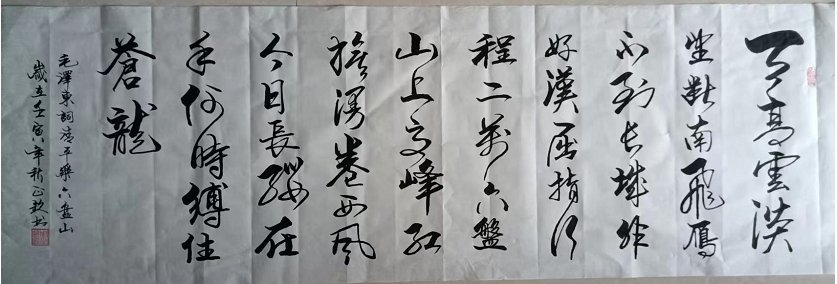 天高雲淡
望斷南飛雁
不到長城非
好漢屈指行
程二萬六盤
山上高峰紅
旗漫卷西風
今日長纓在
手何時縛住
蒼龍
毛澤東詞清平樂六盤山
歲在壬寅年